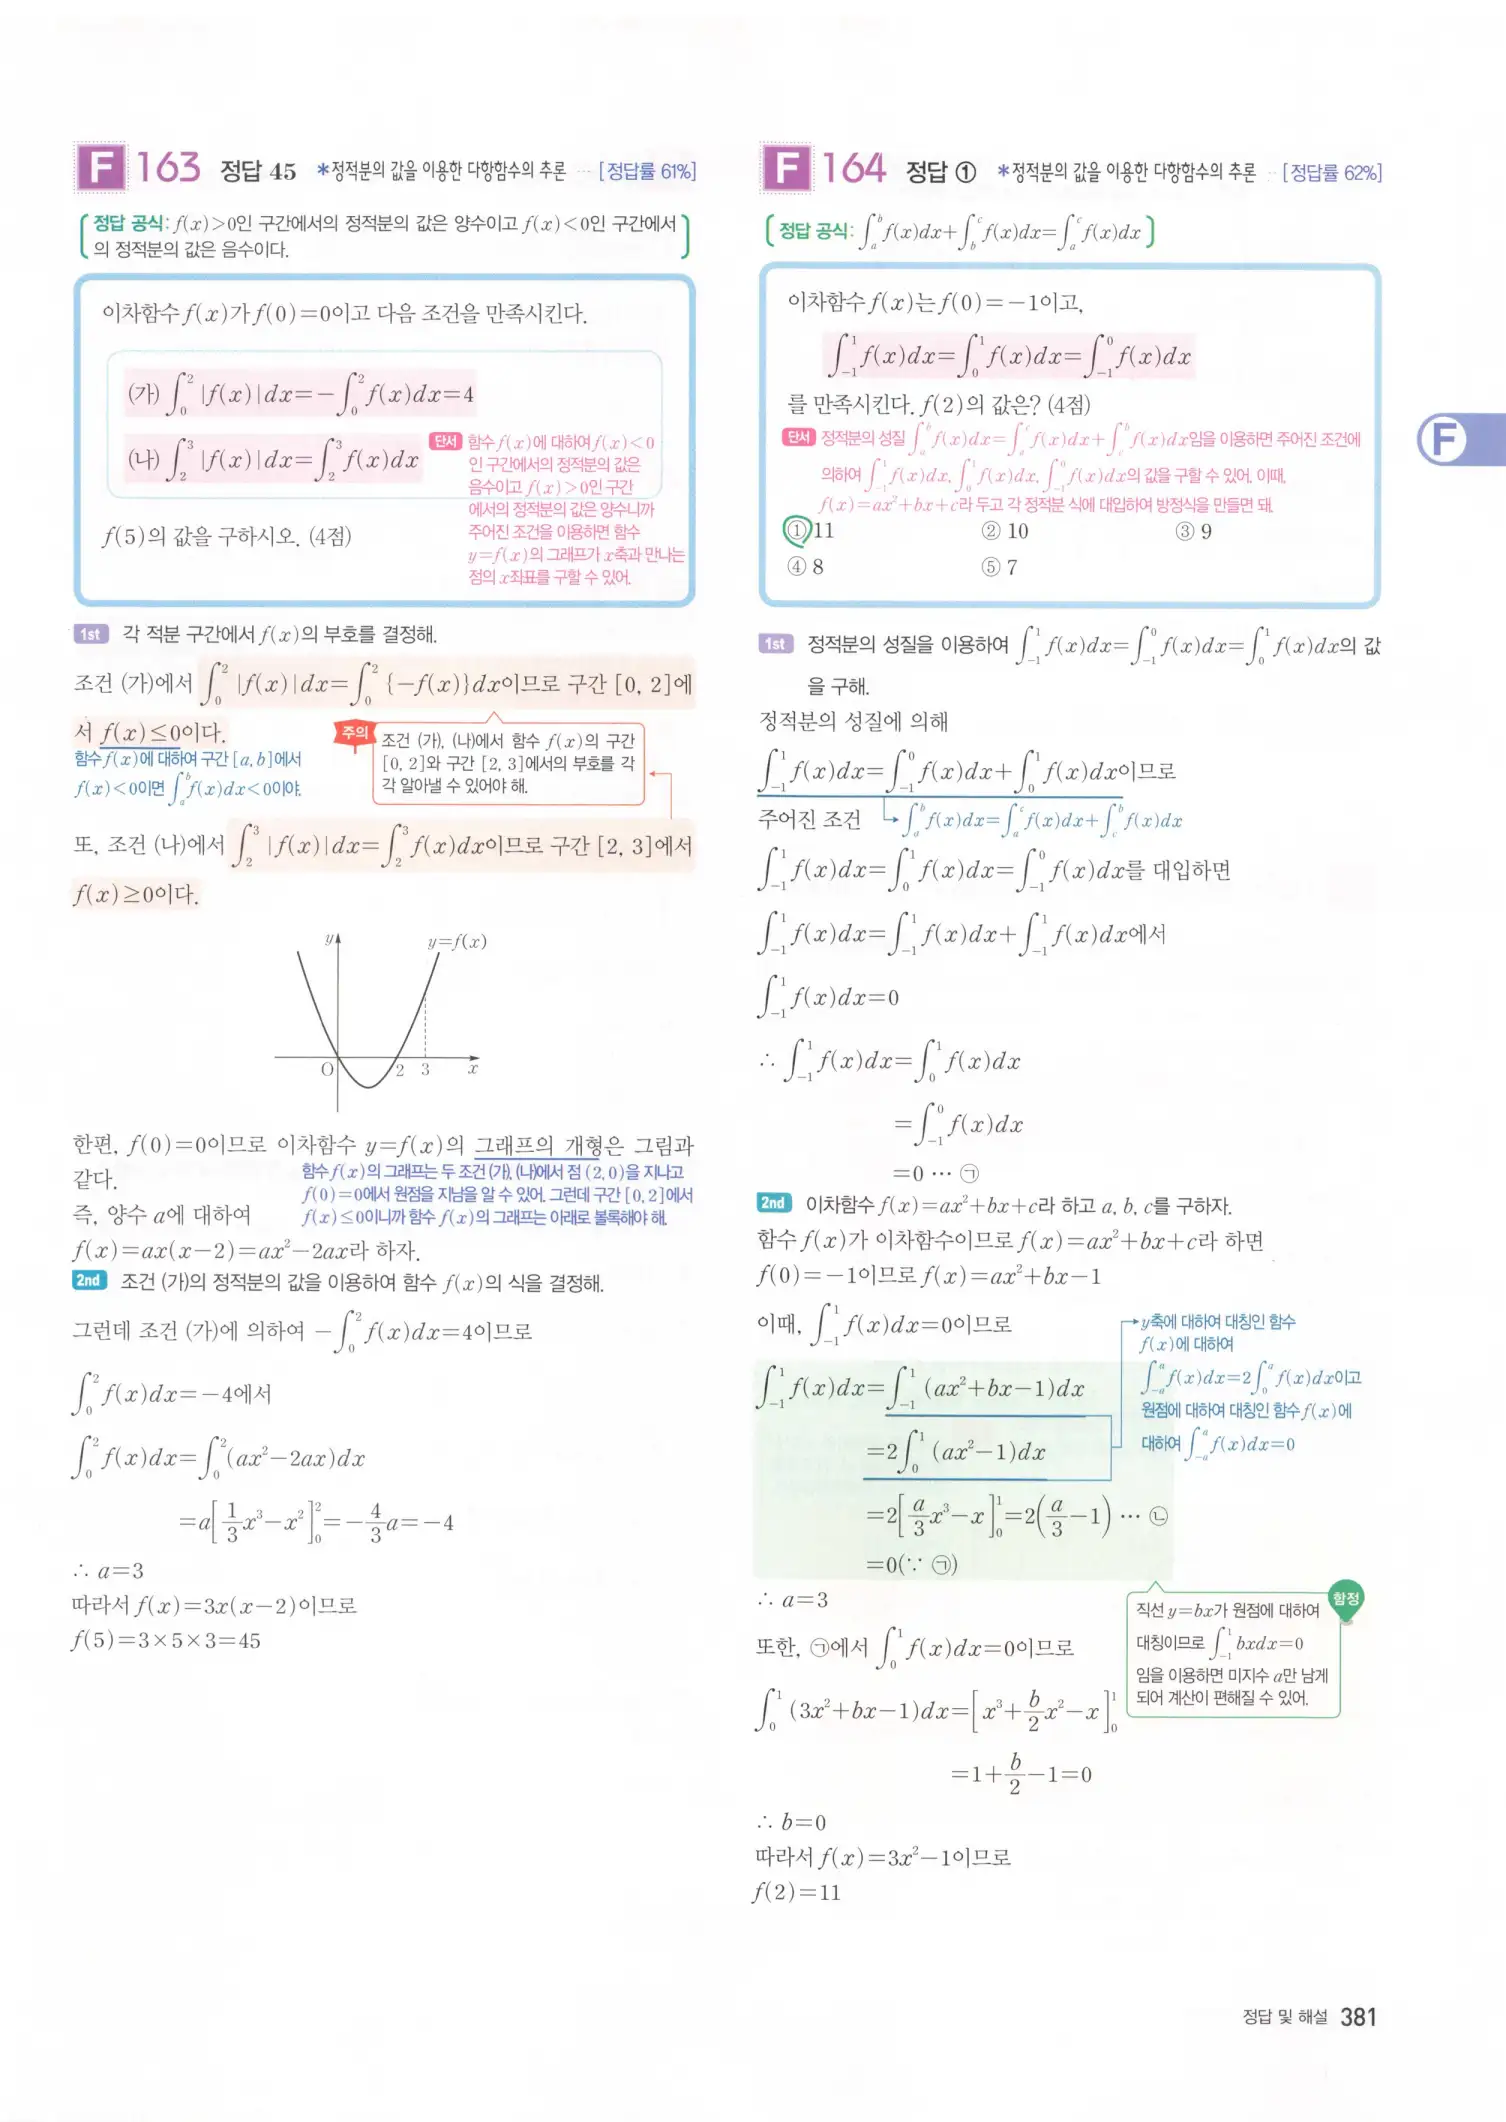 F 163 정답 45 *정적분의 값을 이용한 다항함수의 추론 ··· [정답률 61%]
정답 공식: f(x)>0인 구간에서의 정적분의 값은 양수이고 f(x)<0인 구간에서
의 정적분의 값은 음수이다.
이차함수 f(x)가 f(0)=0이고 다음 조건을 만족시킨다.
(가) ∫₀² |f(x)|dx=-∫₀² f(x)dx=4
(나) ∫₂³ |f(x)|dx=∫₂³ f(x)dx
단서 함수 f(x)에 대하여 f(x)<0
인 구간에서의 정적분의 값은
음수이고 f(x)>0인 구간
에서의 정적분의 값은 양수니까
주어진 조건을 이용하면 함수
y=f(x)의 그래프가 x축과 만나는
점의 x좌표를 구할 수 있어.
f(5)의 값을 구하시오. (4점)
1st 각 적분 구간에서 f(x)의 부호를 결정해.
조건 (가)에서 ∫₀² |f(x)|dx=∫₀² {-f(x)}dx이므로 구간 [0, 2]에
서 f(x)≤0이다.
함수 f(x)에 대하여 구간 [a, b]에서
f(x)<0이면 ∫ₐᵇ f(x)dx<0이야.
주의 조건 (가), (나)에서 함수 f(x)의 구간
[0, 2]와 구간 [2, 3]에서의 부호를 각
각 알아낼 수 있어야 해.
또, 조건 (나)에서 ∫₂³ |f(x)|dx=∫₂³ f(x)dx이므로 구간 [2, 3]에서
f(x)≥0이다.
y y=f(x)
O 2 3 x
한편, f(0)=0이므로 이차함수 y=f(x)의 그래프의 개형은 그림과
같다.
함수 f(x)의 그래프는 두 조건 (가), (나)에서 점 (2, 0)을 지나고
f(0)=0에서 원점을 지남을 알 수 있어. 그런데 구간 [0, 2]에서
f(x)≤0이니까 함수 f(x)의 그래프는 아래로 볼록해야 해.
즉, 양수 a에 대하여
f(x)=ax(x-2)=ax²-2ax라 하자.
2nd 조건 (가)의 정적분의 값을 이용하여 함수 f(x)의 식을 결정해.
그런데 조건 (가)에 의하여 -∫₀² f(x)dx=4이므로
∫₀² f(x)dx=-4에서
∫₀² f(x)dx=∫₀²(ax²-2ax)dx
=a[1/3 x³-x²]₀²=-4/3 a=-4
∴ a=3
따라서 f(x)=3x(x-2)이므로
f(5)=3×5×3=45
F 164 정답 ① *정적분의 값을 이용한 다항함수의 추론 ·· [정답률 62%]
정답 공식: ∫ₐᵇ f(x)dx+∫_b^c f(x)dx=∫_a^c f(x)dx
이차함수 f(x)는 f(0)=-1이고,
∫₋₁¹ f(x)dx=∫₀¹ f(x)dx=∫₋₁⁰ f(x)dx
를 만족시킨다. f(2)의 값은? (4점)
단서 정적분의 성질 ∫_a^b f(x)dx=∫_a^c f(x)dx+∫_c^b f(x)dx임을 이용하면 주어진 조건에
의하여 ∫₋₁¹ f(x)dx, ∫₀¹ f(x)dx, ∫₋₁⁰ f(x)dx의 값을 구할 수 있어. 이때,
f(x)=ax²+bx+c라 두고 각 정적분 식에 대입하여 방정식을 만들면 돼.
① 11 ② 10 ③ 9
④ 8 ⑤ 7
1st 정적분의 성질을 이용하여 ∫₋₁¹ f(x)dx=∫₋₁⁰ f(x)dx=∫₀¹ f(x)dx의 값
을 구해.
정적분의 성질에 의해
∫₋₁¹ f(x)dx=∫₋₁⁰ f(x)dx+∫₀¹ f(x)dx이므로
주어진 조건 ∫_a^b f(x)dx=∫_a^c f(x)dx+∫_c^b f(x)dx
∫₋₁¹ f(x)dx=∫₀¹ f(x)dx=∫₋₁⁰ f(x)dx를 대입하면
∫₋₁¹ f(x)dx=∫₋₁¹ f(x)dx+∫₋₁¹ f(x)dx에서
∫₋₁¹ f(x)dx=0
∴ ∫₋₁¹ f(x)dx=∫₀¹ f(x)dx
=∫₋₁⁰ f(x)dx
=0 ··· ㉠
2nd 이차함수 f(x)=ax²+bx+c라 하고 a, b, c를 구하자.
함수 f(x)가 이차함수이므로 f(x)=ax²+bx+c라 하면
f(0)=-1이므로 f(x)=ax²+bx-1
이때, ∫₋₁¹ f(x)dx=0이므로
∫₋₁¹ f(x)dx=∫₋₁¹ (ax²+bx-1)dx
=2∫₀¹ (ax²-1)dx
=2[a/3 x³-x]₀¹=2(a/3-1) ··· ㉡
=0(∵ ㉠)
y축에 대하여 대칭인 함수
f(x)에 대하여
∫₋ₐᵃ f(x)dx=2∫₀ᵃ f(x)dx이고
원점에 대하여 대칭인 함수 f(x)에
대하여 ∫₋ₐᵃ f(x)dx=0
∴ a=3
함정
직선 y=bx가 원점에 대하여
대칭이므로 ∫₋₁¹ bxdx=0
임을 이용하면 미지수 a만 남게
되어 계산이 편해질 수 있어.
또한, ㉠에서 ∫₀¹ f(x)dx=0이므로
∫₀¹ (3x²+bx-1)dx=[x³+b/2 x²-x]₀¹
=1+b/2-1=0
∴ b=0
따라서 f(x)=3x²-1이므로
f(2)=11
F
정답 및 해설 381